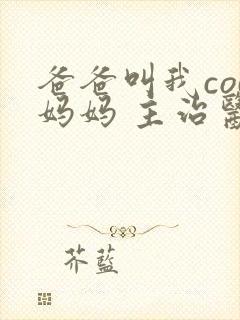 爸爸叫我co
妈妈 主治醫
芥蓝